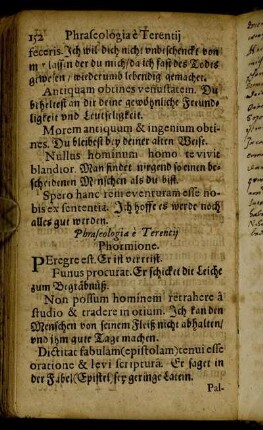 152 Phraseologia è Terentij
feceris. Ich wil dich nicht unbeschenckt von
m lassen der du mich / da ich fast des Todes
gewesen / wiederumb lebendig gemachet.
Antiquam obtines venustatem. Du
behelteſt an dir deine gewöhnliche Freund-
ligkeit und Leutseligkeit.
Morem antiquum & ingenium obti-
nes. Du bleibest bey deiner alten Weise.
Nullus hominum homo te vivit
blandior. Man findet nirgend so einen be-
scheidenen Menschen als du bist.
Spero hanc rem eventuram esse no-
bis ex sententia. Ich hoffe es werde noch
alles gut werden.
Phraseologia è Terentij
Phormione.
PEregre est. Er ist verreist.
Funus procurat. Er schicket die Leiche
zum Begräbnüß.
Non possum hominem retrahere à
studio & tradere in otium. Ich kan den
Menschen von seinem Fleiß nicht abhalten /
und ihm gute Tage machen.
Dictitat fabulam (epistolam) tenui esse
oratione & levi scripturâ. Er saget in
der Fabel (Epistel) sey geringe Latein.
Pal-